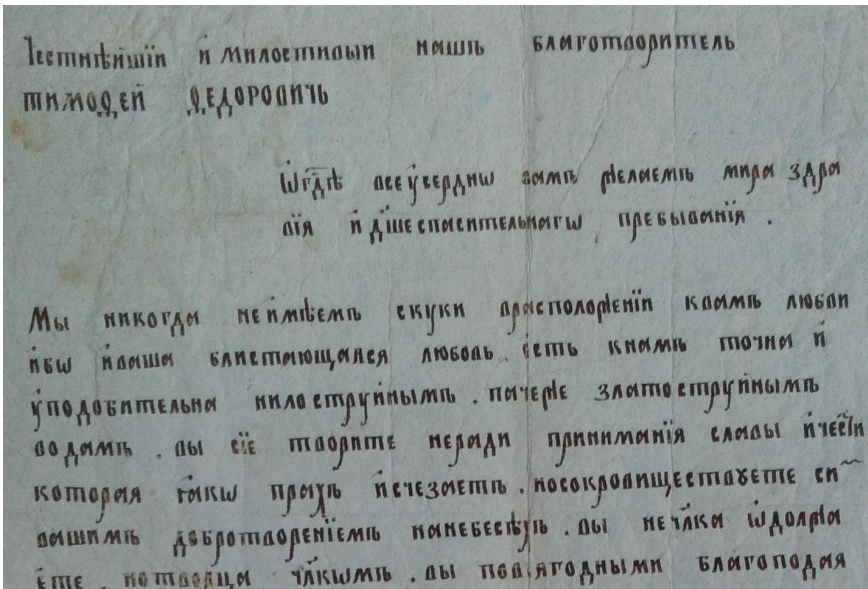 Честнѣйшїи и҆ милостивыи нашъ благотворитель
тимоѳей ѳедоровичь
Ѡ҆ гд҃ѣ всеусердиѡ вамъ желаемъ мира здра
вїя и҆ дш҃еспасительнагѡ пребыванїя .
Мы никогда неи҆мѣемъ скуки врасположенїи квамъ любви
и҆бѡ и҆ваша блистающаяся любовь . е҆сть кнамъ точна и҆
у҆подобительна нилоструйнымъ . паче же златоструйнымъ
водамъ . вы сїе творите неради приниманїя славы и҆чести
которая ꙗ҆кѡ прахъ и҆счезаетъ . носокровиществꙋете си
вашимъ добротворенїемъ нанебесѣхъ . вы нечл҃ка ѡ҆должа
ете . нотворца чл҃кѡмъ . вы подъягодными благоподая